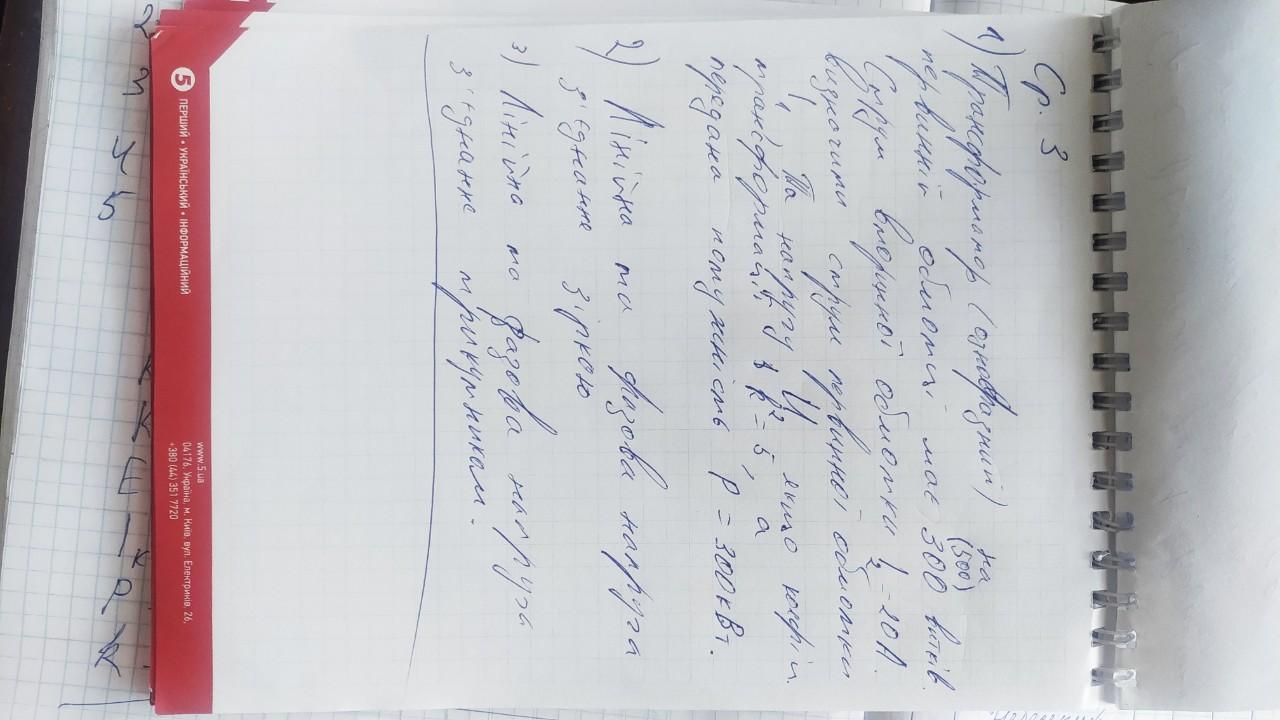 Ср. 3
1) Трансформатор (однофазний) на
(500)
первинній обмотці має 300 витків.
Струм вторинної обмотки i₂ = 20А.
визначити струм первинної обмотки
i₁ та напругу U, якщо коефіц.
трансформації k = 5, а
передана потужність P = 300кВт.
2) Лінійна та фазова напруга
з'єднання зіркою
3) Лінійна та фазова напруга
з'єднання трикутником.
5 ПЕРШИЙ • УКРАЇНСЬКИЙ • ІНФОРМАЦІЙНИЙ
www.5.ua
04176, Україна, м. Київ, вул. Електриків, 26,
+380 (44) 351 7720
2
3
4
5
К
К
Е
І
к
Р